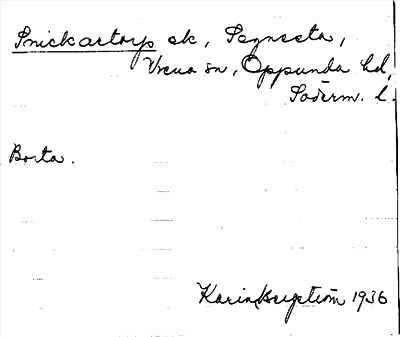 Snickartorp ek, Tegnesta,
Vrena sn, Oppunda hd,
Söderm. l.
Borta.
Karin Bergström 1936